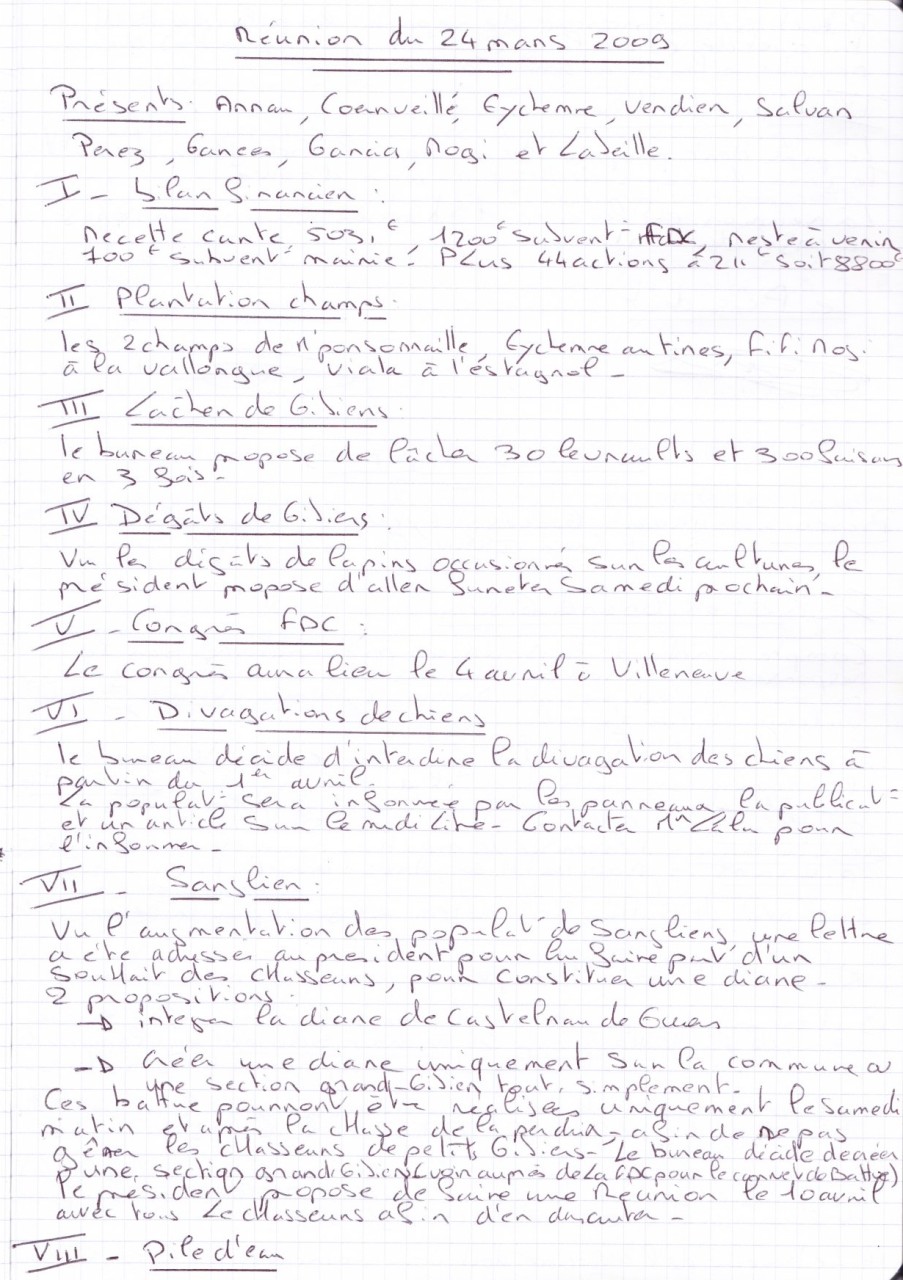 Réunion du 24 mars 2009
Présents: Annau, Coeurveillé, Eychenne, Verdier, Salvan
Perez, Garces, Garcia, Nogi et Labeille.
I - bilan financier :
Recette carte 503,€, 1200€ subvent° FDC, reste à venir
700€ subvent° mairie. Plus 44 actions à 211€ soit 8800€
II Plantation champs:
les 2 champs de Mr ponsonnaille, Eychenne aux tines, fifi Nogi
à la vallongue, Viala à l'estagnol -
III Lâcher de Gibiers:
le bureau propose de lâcher 30 levraults et 300 faisans
en 3 fois -
IV Dégâts de Gibiers:
Vu les dégâts de lapins occasionnés sur les cultures, le
président propose d'aller fureter Samedi prochain -
V - Congrès FDC :
Le congrès aura lieu le 4 avril à Villeneuve
VI - Divagations de chiens
le bureau décide d'interdire la divagation des chiens à
partir du 1er avril.
La populat° sera informée par les panneaux, la publicat°
et un article sur le midi libre - Contacter Mr pour
l'informer -
VII - Sanglier :
Vu l'augmentation des populat° de Sangliers, une lettre
a été adressée au président pour lui faire part d'un
souhait des chasseurs, pour constituer une diane -
2 propositions :
→ intégrer la diane de Castelnau de Guers
→ Créer une diane uniquement sur la commune ou
une section grand-Gibier tout simplement -
Ces battue pourront être réalisées uniquement le samedi
matin et après la chasse de la perdrix, afin de ne pas
gêner les chasseurs de petits Gibiers - Le bureau décide de créer
une section grand Gibier (voir auprès de la FDC pour le carnet de Battue)
le président propose de faire une Réunion le 10 avril
avec tous le chasseurs afin d'en discuter -
VIII - Pile d'eau